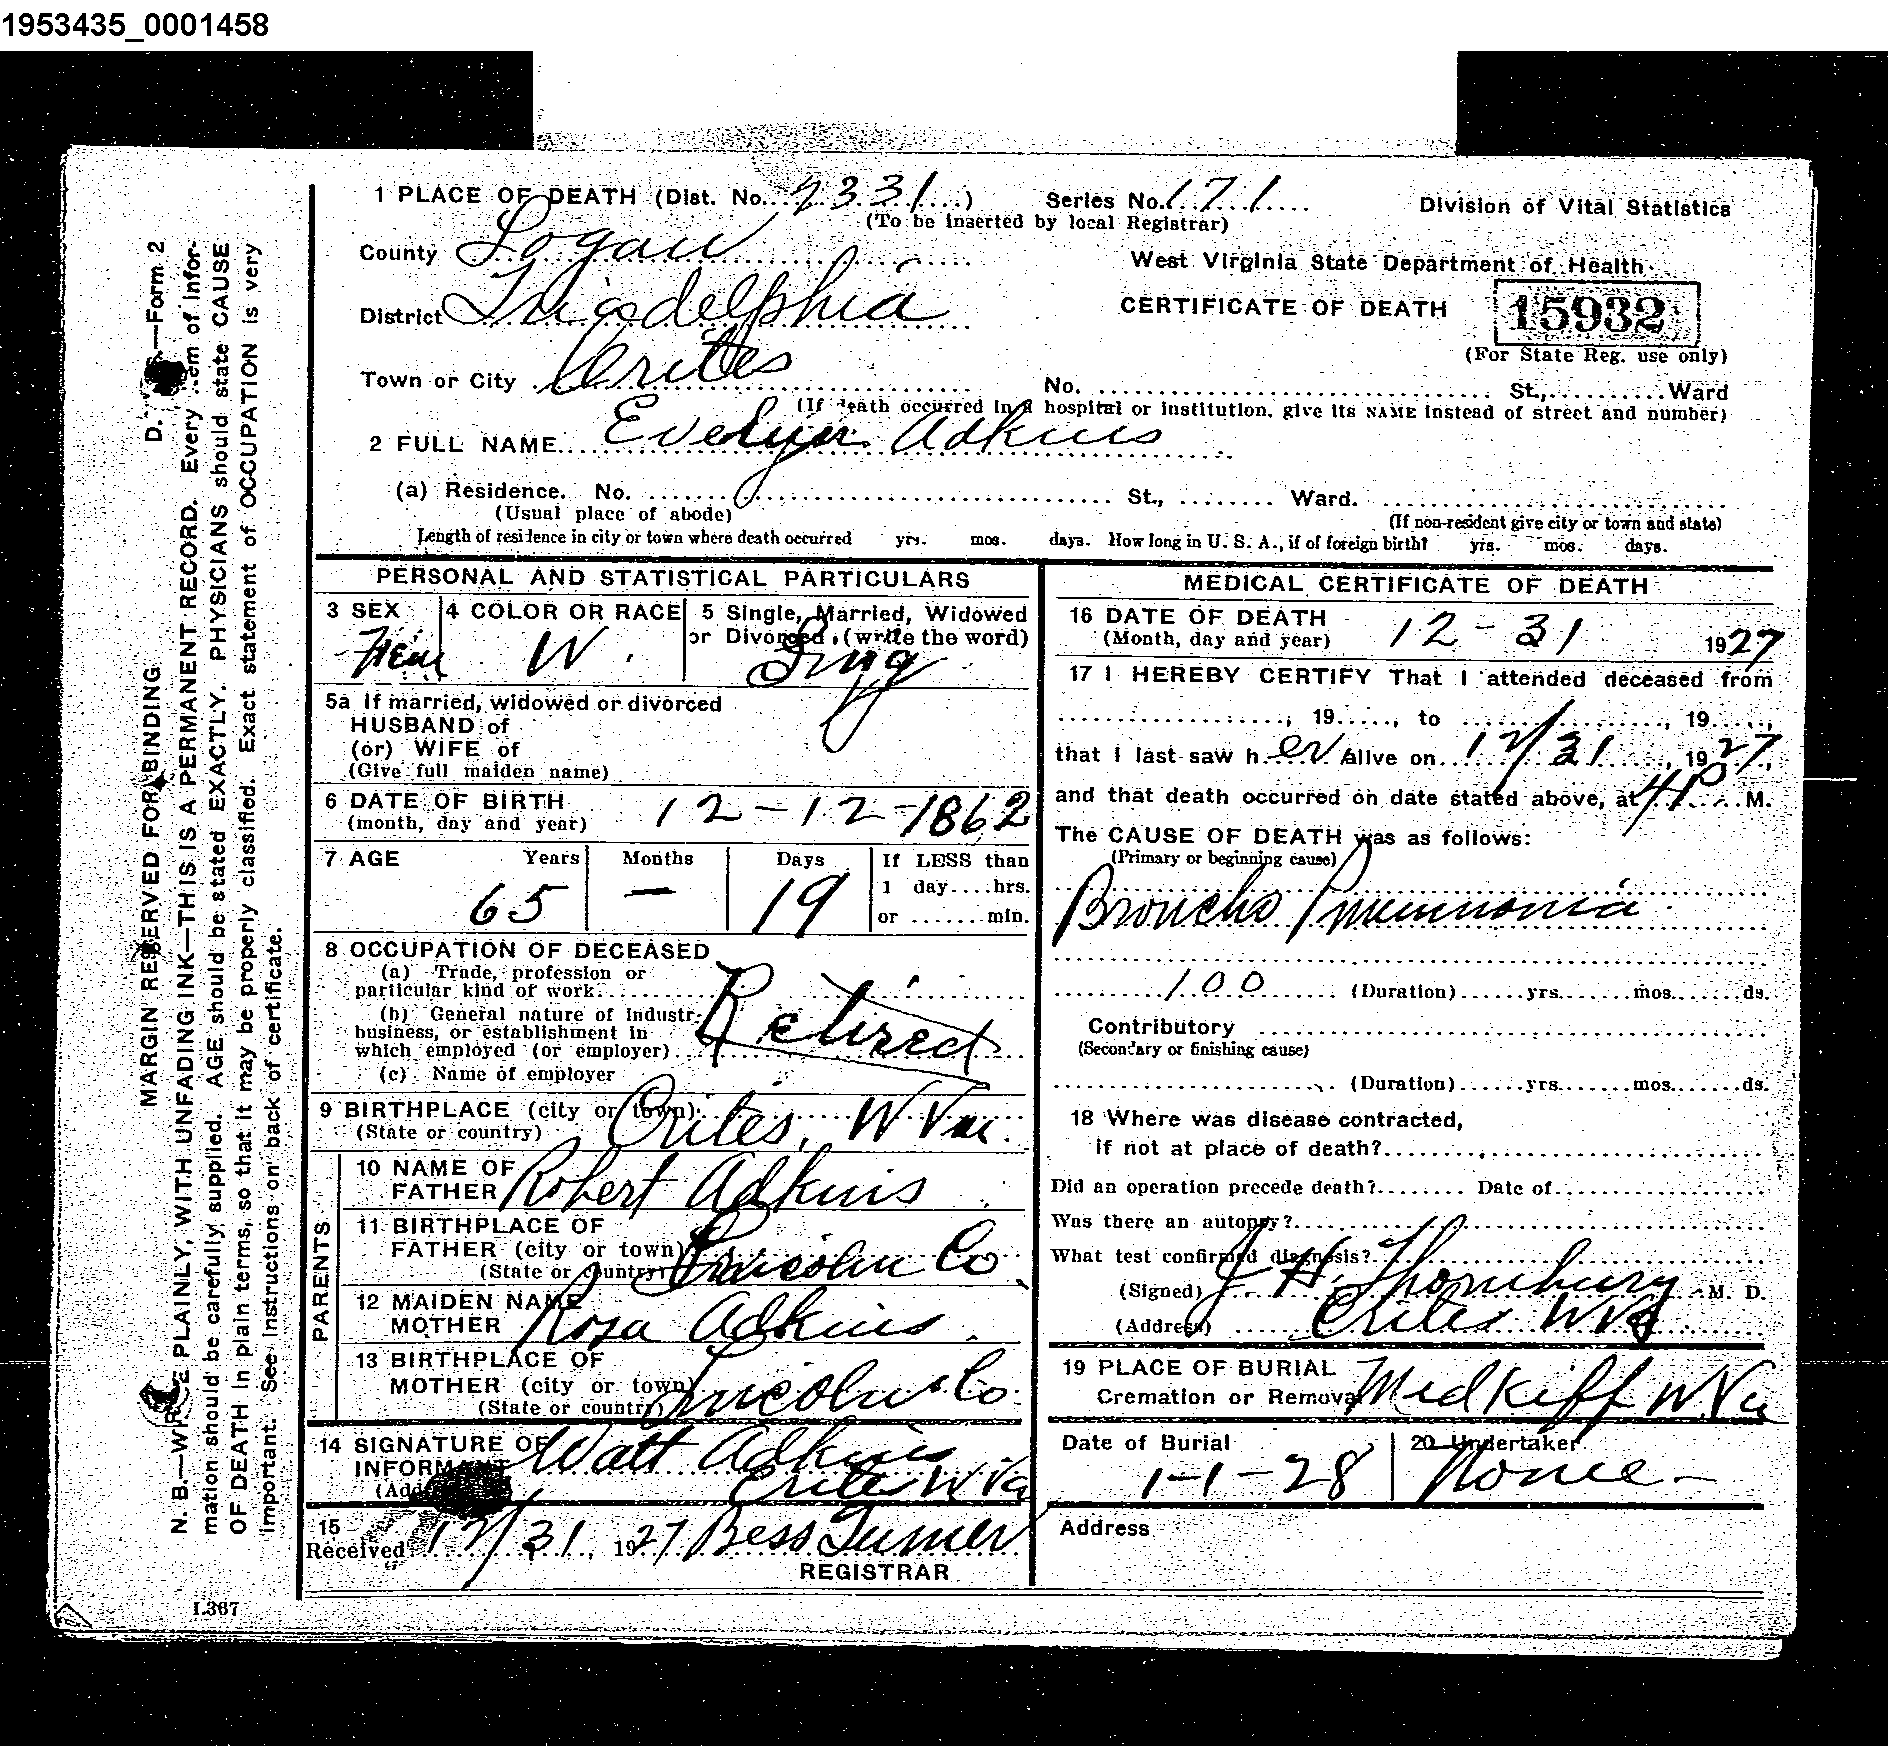 1953435_0001458
1 PLACE OF DEATH (Dist. No. 4331) Series No. 171 Division of Vital Statistics
(To be inserted by local Registrar)
County Logan
West Virginia State Department of Health
District Triadelphia
CERTIFICATE OF DEATH 15932
(For State Reg. use only)
Town or City Crites
No. St., Ward
(If death occurred in a hospital or institution, give its NAME instead of street and number)
2 FULL NAME Evelyn Adkins
(a) Residence. No. St., Ward.
(Usual place of abode) (If non-resident give city or town and state)
Length of residence in city or town where death occurred yrs. mos. days. How long in U. S. A., if of foreign birth? yrs. mos. days.
PERSONAL AND STATISTICAL PARTICULARS
3 SEX 4 COLOR OR RACE 5 Single, Married, Widowed
or Divorced, (write the word)
Fem W. Sing
5a If married, widowed or divorced
HUSBAND of
(or) WIFE of
(Give full maiden name)
6 DATE OF BIRTH 12-12-1862
(month, day and year)
7 AGE Years Months Days If LESS than
1 day....hrs.
65 — 19 or ....... min.
8 OCCUPATION OF DECEASED
(a) Trade, profession or
particular kind of work
(b) General nature of Industr
business, or establishment in
which employed (or employer) Retired
(c) Name of employer
9 BIRTHPLACE (city or town) Crites, W Va.
(State or country)
PARENTS
10 NAME OF
FATHER Robert Adkins
11 BIRTHPLACE OF
FATHER (city or town) Lincoln Co
(State or country)
12 MAIDEN NAME
MOTHER Rosa Adkins.
13 BIRTHPLACE OF
MOTHER (city or town) Lincoln Co.
(State or country)
14 SIGNATURE OF
INFORMANT Watt Adkins
(Add Crites W Va
15
Received 12/31, 1927 Bess Turner
REGISTRAR
MEDICAL CERTIFICATE OF DEATH
16 DATE OF DEATH 12-31 1927
(Month, day and year)
17 I HEREBY CERTIFY That I attended deceased from
, 19....., to , 19.....,
that I last saw her alive on 12/31, 1927,
and that death occurred on date stated above, at 4 P M.
The CAUSE OF DEATH was as follows:
(Primary or beginning cause)
Broncho Pneumonia
100 (Duration) yrs. mos. ds.
Contributory
(Secondary or finishing cause)
(Duration) yrs. mos. ds.
18 Where was disease contracted,
if not at place of death?
Did an operation precede death? Date of
Was there an autopsy?
What test confirmed diagnosis?
(Signed) J. H. Thornbury M. D.
(Address) Crites W Va
19 PLACE OF BURIAL
Cremation or Removal Midkiff W. Va
Date of Burial 20 Undertaker
1-1-28 None
Address
D. —Form 2
MARGIN RESERVED FOR BINDING
N. B.—WRITE PLAINLY, WITH UNFADING INK—THIS IS A PERMANENT RECORD. Every item of infor-
mation should be carefully supplied. AGE should be stated EXACTLY. PHYSICIANS should state CAUSE
OF DEATH in plain terms, so that it may be properly classified. Exact statement of OCCUPATION is very
important. See instructions on back of certificate.
I.367